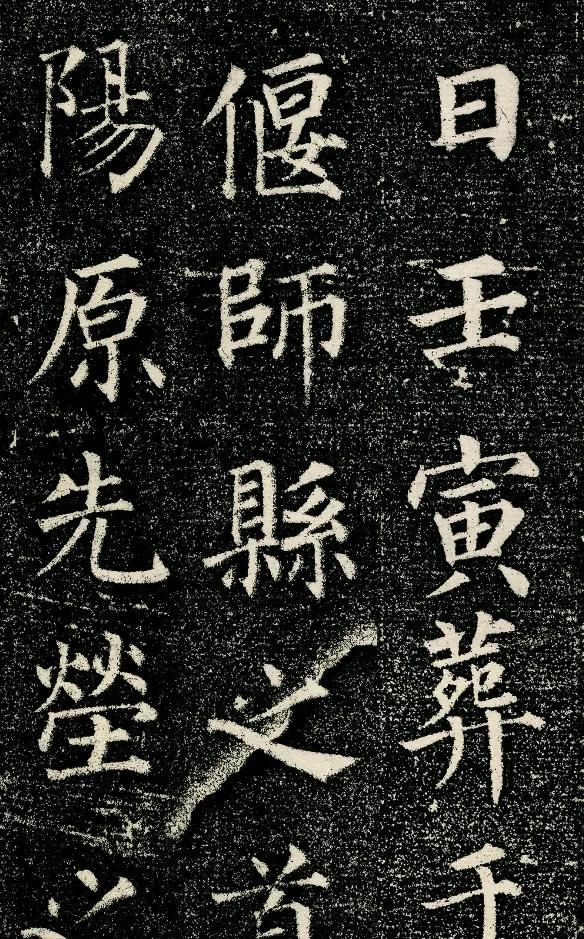 日壬寅葬于
偃師縣之首
陽原先塋之